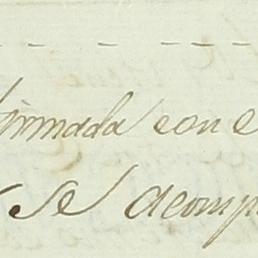 firmada con e
se acomp